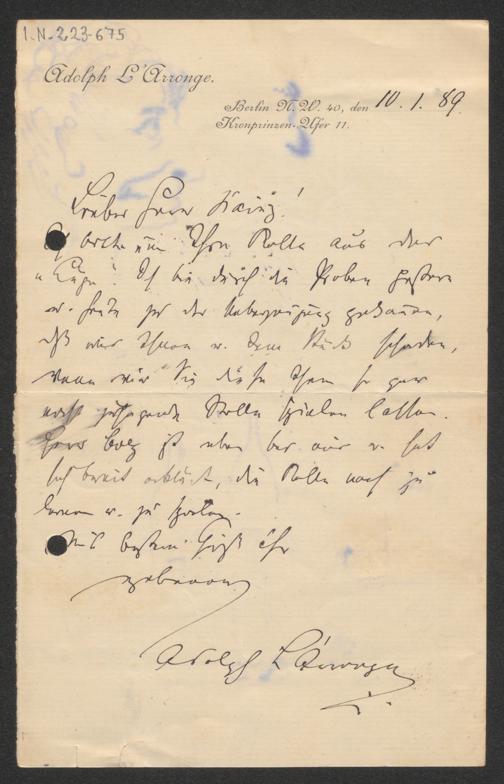 I.N. 223.675
Adolph L'Arronge.
Berlin N.W. 40, den 10. 1. 89.
Kronprinzen-Ufer 11.
Lieber Herr Kainz!
Ich bitte um Ihre Rolle aus der
Ich bin durch die Proben gestern
u. heute zu der Ueberzeugung gekommen,
daß wir Ihnen u. dem Stück schaden,
wenn wir Sie diese Ihnen so gar
nicht zusagende Rolle spielen lassen.
Herr ist eben bei mir u. hat
sich bereit erklärt, die Rolle noch zu
lernen u. zu spielen.
Mit bestem Gruß Ihr
ergebener
Adolph L'Arronge